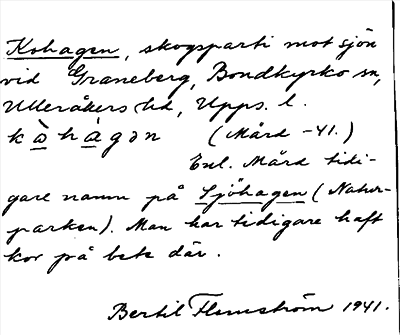 Kohagen, skogsparti mot sjön
vid Graneberg, Bondkyrko sn,
Ulleråkers hd, Upps. l.
kòhàgən (Mård -41.)
Enl. Mård tidi-
gare namn på Sjöhagen (Natur-
parken). Man har tidigare haft
kor på bete där.
Bertil Flemström 1941.